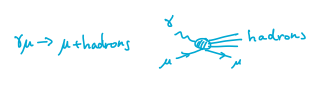 γμ → μ + hadrons
γ
hadrons
μ
μ